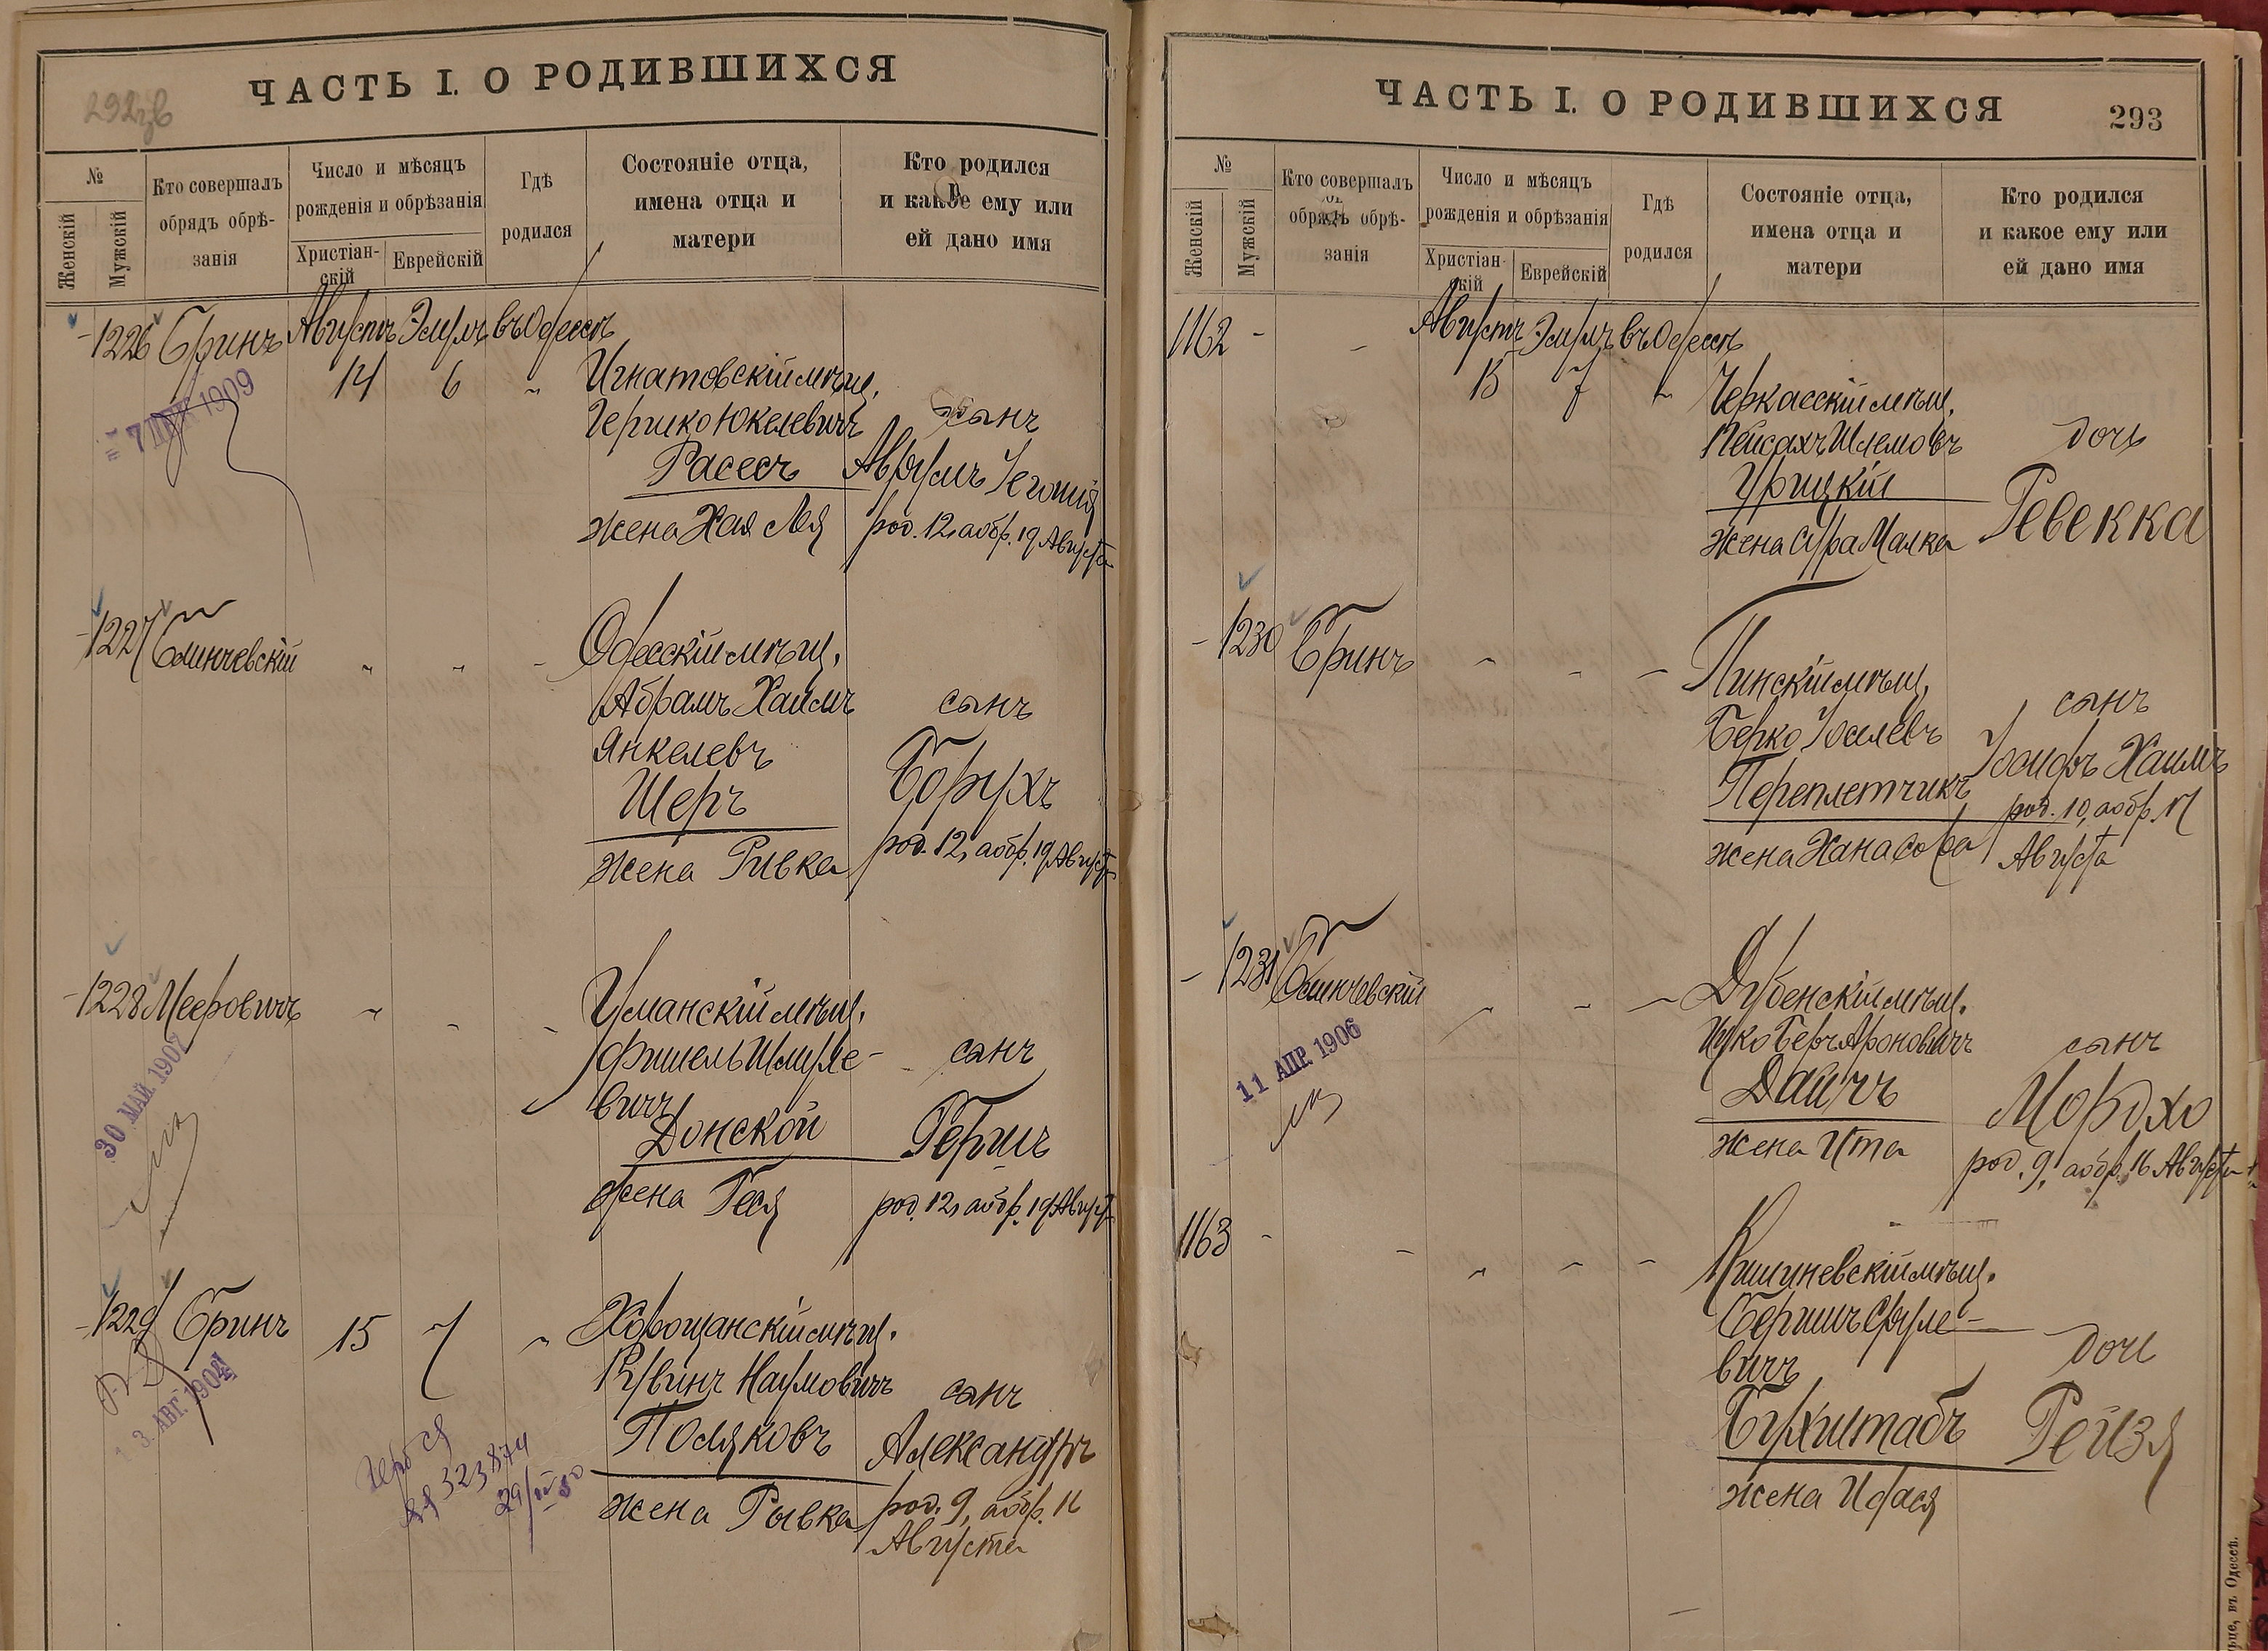 292 об
ЧАСТЬ I. О РОДИВШИХСЯ
№
Женскій
Мужскій
Кто совершалъ
обрядъ обрѣ-
занія
Число и мѣсяцъ
рожденія и обрѣзанія
Христіан-
скій
Еврейскій
Гдѣ
родился
Состояніе отца,
имена отца и
матери
Кто родился
и какое ему или
ей дано имя
- 1226 Гринъ Августъ Элулъ въ Одессѣ
14 6 "
Игнатовскій мѣщ.
Гершко Юкелевичъ
Расесъ
жена Хая Лея
сынъ
Аврумъ
род. 12, а обр. 19 Августа
7 1909
- 1227 " " "
Одесскій мѣщ.
Абрамъ Хаимъ
Янкелевъ
Шеръ
жена Ривка
сынъ
Борухъ
род. 12, а обр. 19 Августа
- 1228 Мееровичъ " " "
Уманскій мѣщ.
Фишель Шмуле-
вичъ
Донской
жена Геся
сынъ
Гершъ
род. 12, а обр. 19 Августа
30 МАЙ 1907
- 1229 Гринъ 15 7 "
Хорощанскій мѣщ.
Рувинъ Наумовичъ
Поляковъ
жена Рывка
сынъ
Александръ
род. 9, а обр. 16
Августа
3. АВГ. 1904
323874
ЧАСТЬ I. О РОДИВШИХСЯ
293
№
Женскій
Мужскій
Кто совершалъ
обрядъ обрѣ-
занія
Число и мѣсяцъ
рожденія и обрѣзанія
Христіан-
скій
Еврейскій
Гдѣ
родился
Состояніе отца,
имена отца и
матери
Кто родился
и какое ему или
ей дано имя
1162 - - Августъ Элулъ въ Одессѣ
15 7 "
Черкасскій мѣщ.
Пейсахъ Шлемовъ
Урицкій
жена Сура Малка
дочь
Ревекка
- 1230 Гринъ " " "
Пинскій мѣщ.
Берко Іоселевъ
Переплетчикъ
жена Хана Сора
сынъ
Іосифъ Хаимъ
род. 10, а обр. 17
Августа
- 1231 " " "
Дубенскій мѣщ.
Ицко Беръ Ароновичъ
Дайчъ
жена Ита
сынъ
Мордхо
род. 9, а обр. 16 Августа
11 АПР. 1906
1163 - - " " "
Кишиневскій мѣщ.
Гершъ Сруле-
вичъ
Бухштабъ
жена
дочь
Рейзя
въ Одессѣ.